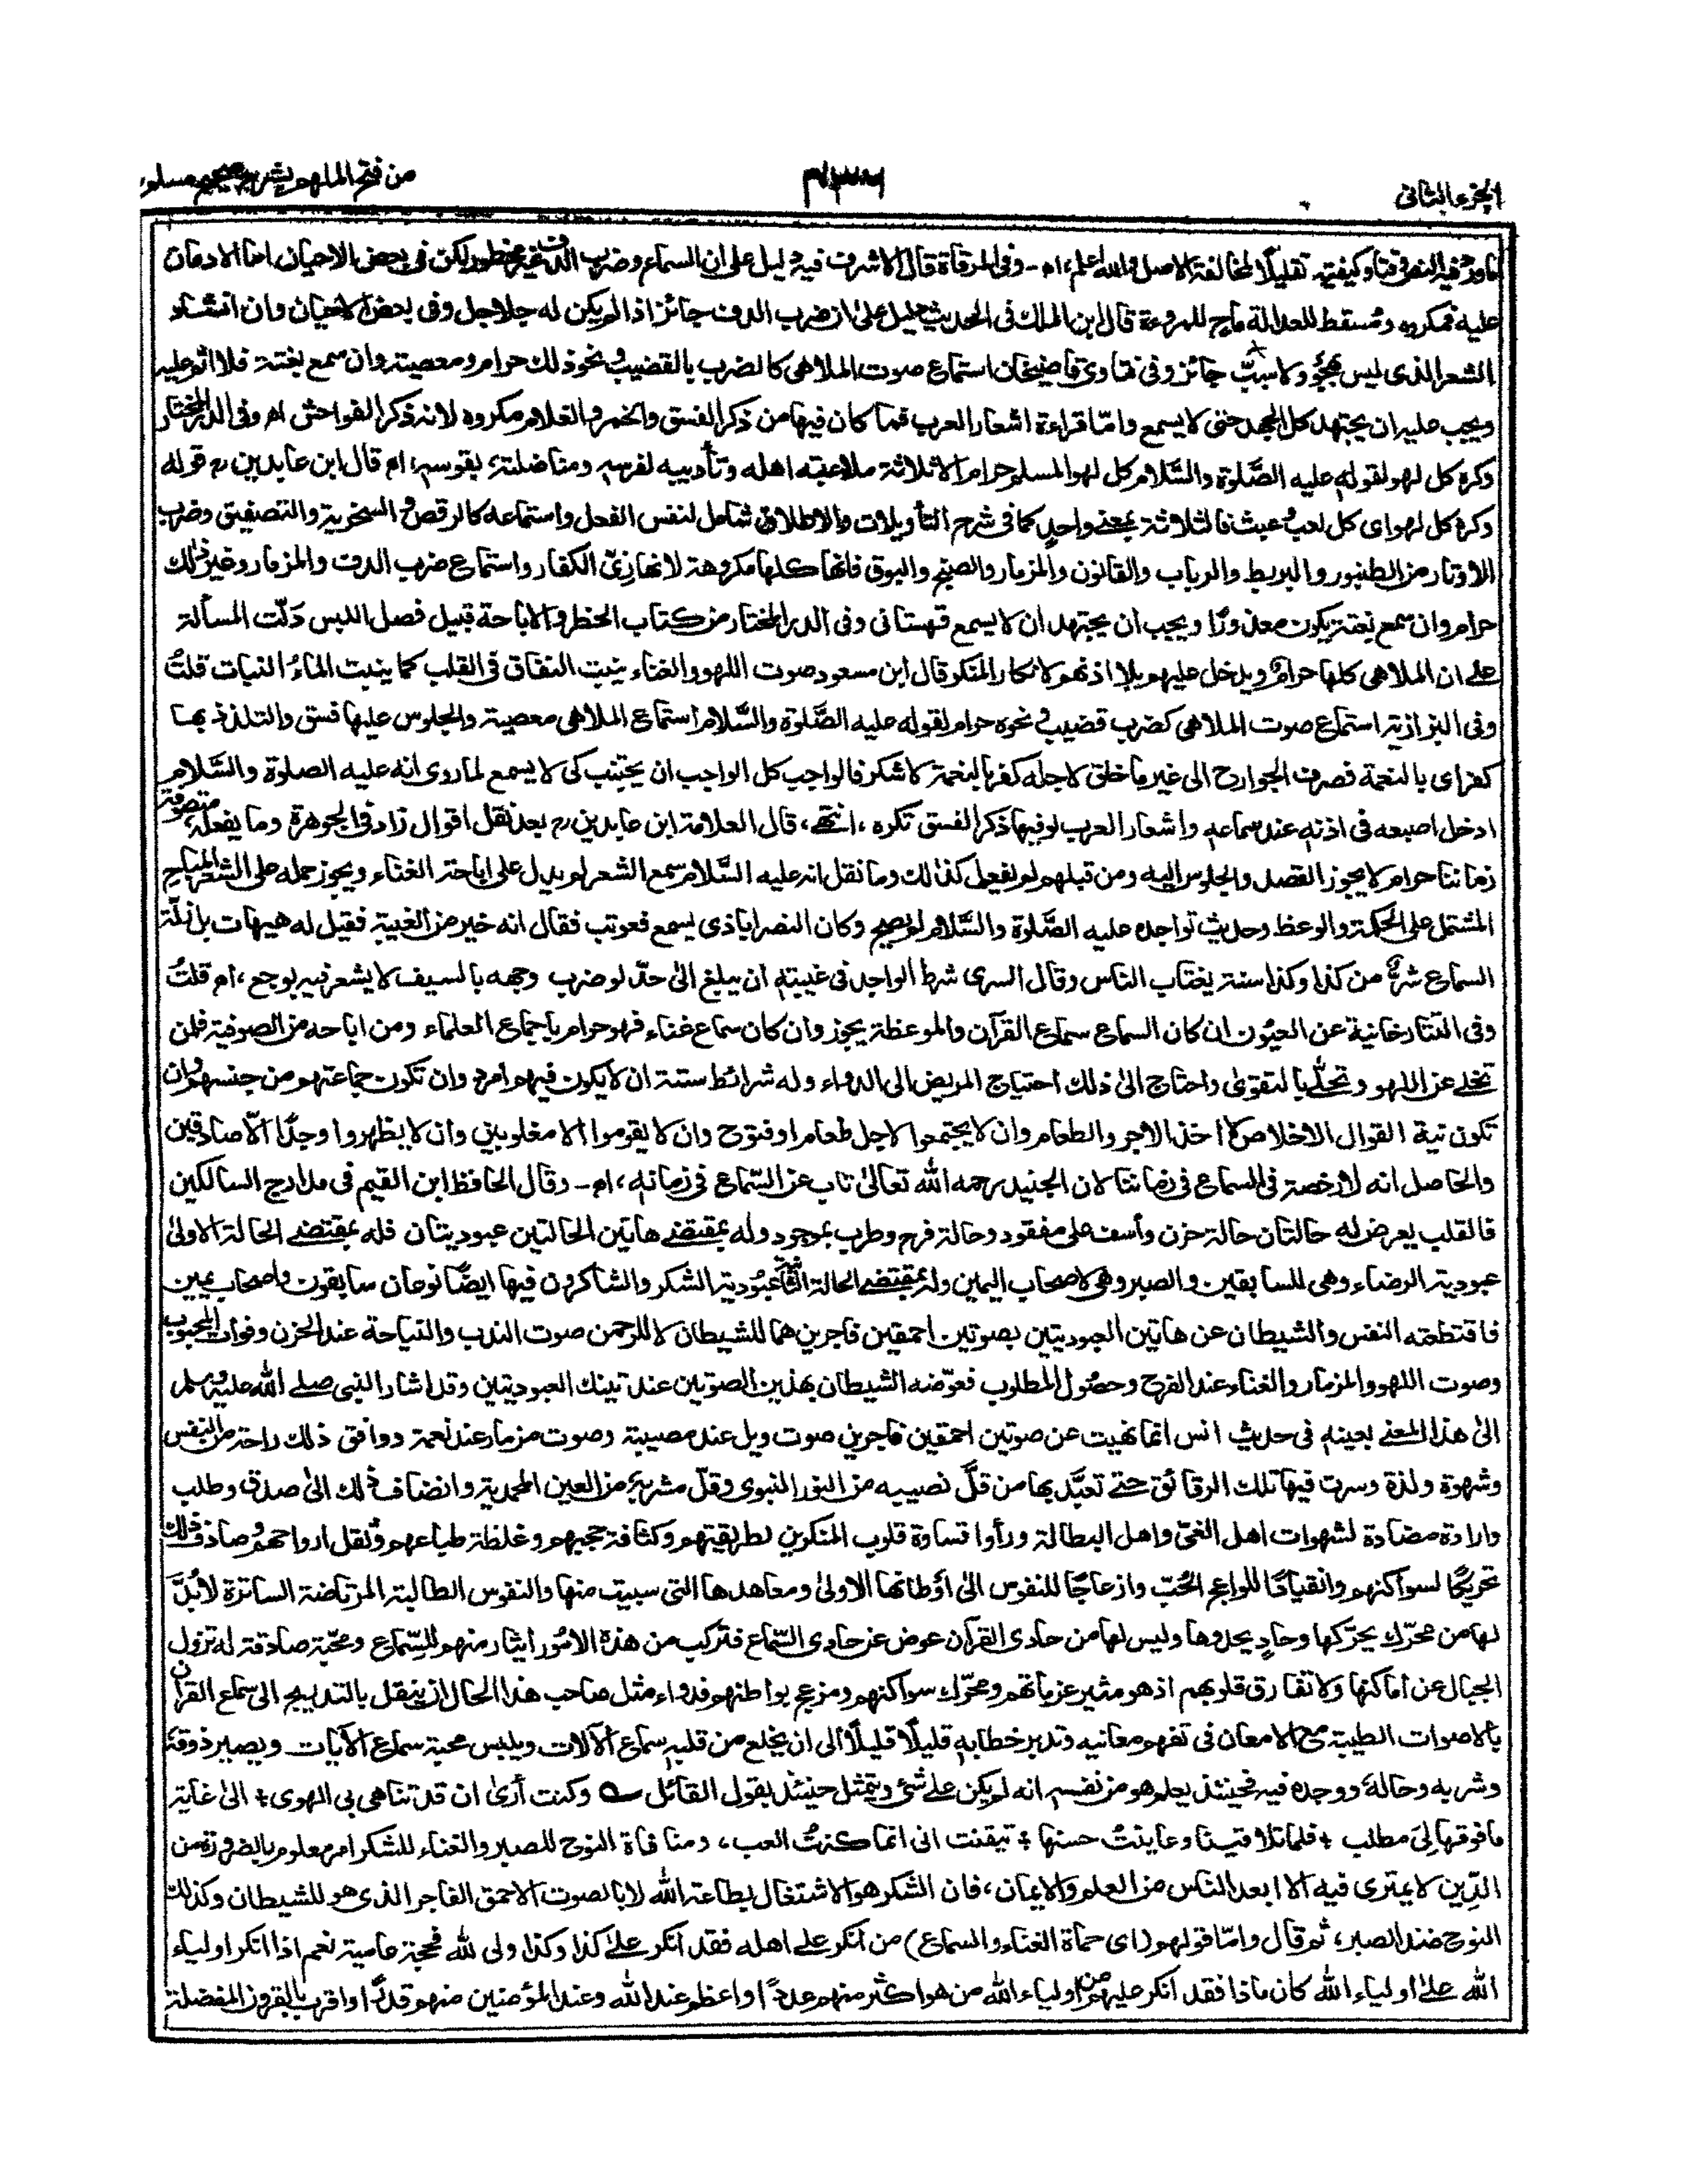 الجزء الثاني
من فتح الملهم بشرح صحيح مسلم
ما ورد فيه النص وقتا وكيفية تقليلًا لمخالفة الاصل والله اعلم، اھ - وفى المرقاة قال الاشرف فيه دليل على ان السماع وضرب الدف غير محظور لكن فى بعض الاحيان اما الادمان
عليه فمكروه ومُسقط للعدالة ماح للمروءة قال ابن الملك فى الحديث دليل على ان ضرب الدف جائز اذا لم يكن له جلاجل وفى بعض الاحيان وان انشاد
الشعر الذى ليس بهجو ولا سبّ جائز وفى فتاوى قاضيخان استماع صوت الملاهى كالضرب بالقضيب ونحو ذلك حرام ومعصية وان سمع بغتة فلا اثم عليه
ويجب عليه ان يجتهد كل الجهد حتى لا يسمع وامّا قراءة اشعار العرب فما كان فيها من ذكر الفسق والخمر والغلام مكروه لانه ذكر الفواحش اھ وفى الدر المختار
وكره كل لهو لقوله عليه الصَّلوة والسَّلام كل لهو المسلم حرام الا ثلاثة ملاعبته اهله وتأديبه لفرسه ومناضلته بقوسه، اھ قال ابن عابدين رح قوله
وكره كل لهو اى كل لعب وعبث فالثلاثة بمعنى واحدٍ كما فى شرح التأويلات والاطلاق شامل لنفس الفعل واستماعه كالرقص والسخرية والتصفيق وضرب
الاوتار من الطنبور والبربط والرباب والقانون والمزمار والصنج والبوق فانها كلها مكروهة لانها زىّ الكفار واستماع ضرب الدف والمزمار وغير ذلك
حرام وان سمع بغتة يكون معذورًا ويجب ان يجتهد ان لا يسمع قهستانى وفى الدر المختار من كتاب الحظر والاباحة قبيل فصل اللبس دَلّت المسألة
على ان الملاهى كلها حرام ويدخل عليهم بلا اذنهم لانكار المنكر قال ابن مسعود صوت اللهو والغناء ينبت النفاق فى القلب كما ينبت الماءُ النبات قلتُ
وفى البزازية استماع صوت الملاهى كضرب قضيب ونحوه حرام لقوله عليه الصَّلوة والسَّلام استماع الملاهى معصية والجلوس عليها فسق والتلذذ بها
كفر اى بالنعمة فصرف الجوارح الى غير ما خلق لاجله كفر بالنعمة لا شكر فالواجب كل الواجب ان يجتنب كى لا يسمع لما روى انه عليه الصلوة والسَّلام
ادخل اصبعه فى اذنه عند سماعه واشعار العرب لو فيها ذكر الفسق تكره، انتهى، قال العلامة ابن عابدين رح بعد نقل اقوال زاد فى الجوهرة وما يفعله متصوفة
زماننا حرام لا يجوز القصد والجلوس اليه ومن قبلهم لم يفعل كذلك وما نقل انه عليه السَّلام سمع الشعر لم يدل على اباحة الغناء ويجوز حمله على الشعر المباح
المشتمل على الحكمة والوعظ وحديث تواجده عليه الصَّلوة والسَّلام لم يصح وكان النصراباذى يسمع فعوتب فقال انه خير من الغيبة فقيل له هيهات بل زلّة
السماع شرٌّ من كذا وكذا سنة يغتاب الناس وقال السرى شرط الواجد فى غيبته ان يبلغ الى حدّ لو ضرب وجهه بالسيف لا يشعر فيه بوجع، اھ قلتُ
وفى التتارخانية عن العيُون ان كان السماع سماع القرآن والموعظة يجوز وان كان سماع غناء فهو حرام باجماع العلماء ومن اباحه من الصوفية فلمن
تخلى عن اللهو وتحلّى بالتقوىٰ واحتاج الىٰ ذلك احتياج المريض الى الدواء وله شرائط ستة ان لا يكون فيهم امرد وان تكون جماعتهم من جنسهم وان
تكون نية القوال الاخلاص لا اخذ الاجر والطعام وان لا يجتمعوا لاجل طعام او فتوح وان لا يقوموا الا مغلوبين وان لا يظهروا وجدًا الّا صادقين
والحاصل انه لا رخصة فى السماع فى زماننا لان الجنيد رحمه الله تعالىٰ تاب عن السّماع فى زمانه، اھ - وقال الحافظ ابن القيم فى مدارج السالكين
فالقلب يعرض له حالتان حالة حزن وأسف على مفقود وحالة فرح وطرب بموجود وله بمقتضى هاتين الحالتين عبوديتان فله بمقتضى الحالة الاولىٰ
عبودية الرضاء وهى للسابقين والصبر وهى لاصحاب اليمين وله بمقتضى الحالة الثانية عبُودية الشكر والشاكرون فيها ايضًا نوعان سابقون واصحاب يمين
فاقتطعته النفس والشيطان عن هاتين العبوديتين بصوتين احمقين فاجرين هما للشيطان لا للرحمن صوت الندب والنياحة عند الحزن وفوات المحبوب
وصوت اللهو والمزمار والغناء عند الفرح وحصُول المطلوب فعوّضه الشيطان بهذين الصوتين عند تينك العبوديتين وقد اشار النبى صلى الله عليه وسلم
الىٰ هذا المعنى بعينه فى حديث انس انما نهيت عن صوتين احمقين فاجرين صوت ويل عند مصيبة وصوت مزمار عند نعمة ووافق ذلك راحة من النفس
وشهوة ولذة وسرت فيها تلك الرقائق حتى تعبَّد بها من قلَّ نصيبه من النور النبوى وقلّ مشربه من العين المحمدية وانضاف ذلك الىٰ صدق وطلب
وارادة مضادة لشهوات اهل الغىّ واهل البطالة ورأوا قساوة قلوب المنكرين لطريقتهم وكثافة حجبهم وغلظة طباعهم وثقل ارواحهم وصادف ذلك
تحريكًا لسواكنهم وانقيادًا للواعج الحُبّ وازعاجًا للنفوس الىٰ أوطانها الاولىٰ ومعاهدها التى سبيت منها والنفوس الطالبة المرتاضة السائرة لابُدَّ
لها من محرّك يحرّكها وحادٍ يحدوها وليس لها من حادى القرآن عوض عن حادى السّماع فتركب من هذه الامُور ايثار منهم للسّماع ومحبّة صادقة له تزول
الجبال عن اماكنها ولا تفارق قلوبهم اذ هو مثير عزماتهم ومحرّك سواكنهم ومزعج بواطنهم فدواء مثل صاحب هذا الحال ان ينقل بالتدريج الى سماع القرآن
بالاصوات الطيبة مع الامعان فى تفهم معانيه وتدبر خطابه قليلًا قليلًا الى ان يخلع من قلبه سماع الآلات ويلبس محبة سماع الآيات ويصير ذوقه
وشربه وحاله ووجده فيه فحينئذ يعلم هو من نفسه انه لم يكن على شئ ويتمثل حينئذ بقول القائل وكنت أرىٰ ان قد تناهى بى الهوى ؛ الىٰ غاية
ما فوقها لِىَ مطلب ؛ فلما تلاقينا وعاينتُ حسنها ؛ تيقنت انى انما كنتُ العب، ومنافاة النوح للصبر والغناء للشكر امر معلوم بالضرورة من
الدّين لا يمترى فيه الا ابعد الناس من العلم والايمان، فان الشكر هو الاشتغال بطاعة الله لا بالصوت الاحمق الفاجر الذى هو للشيطان وكذلك
النوح ضد الصبر، ثم قال وامّا قولهم (اى حماة الغناء والسماع) من انكر على اهله فقد انكر علىٰ كذا وكذا ولى لله فحجة عامية نعم اذا انكر اولياء
الله علىٰ اولياء الله كان ماذا فقد انكر عليهم من اولياء الله من هو اكثر منهم عددًا واعظم عند الله وعند المؤمنين منهم قدرًا واقرب بالقرون المفضلة